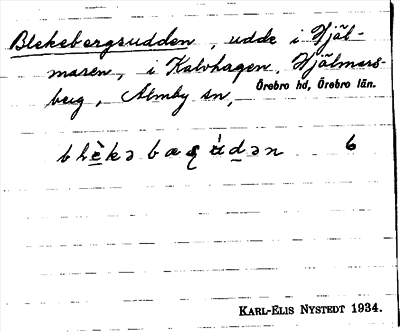 Blekebergsudden, udde i Hjäl-
maren, i Kalvhagen, Hjälmars-
berg, Almby sn, Örebro hd, Örebro län.
6
KARL-ELIS NYSTEDT 1934.